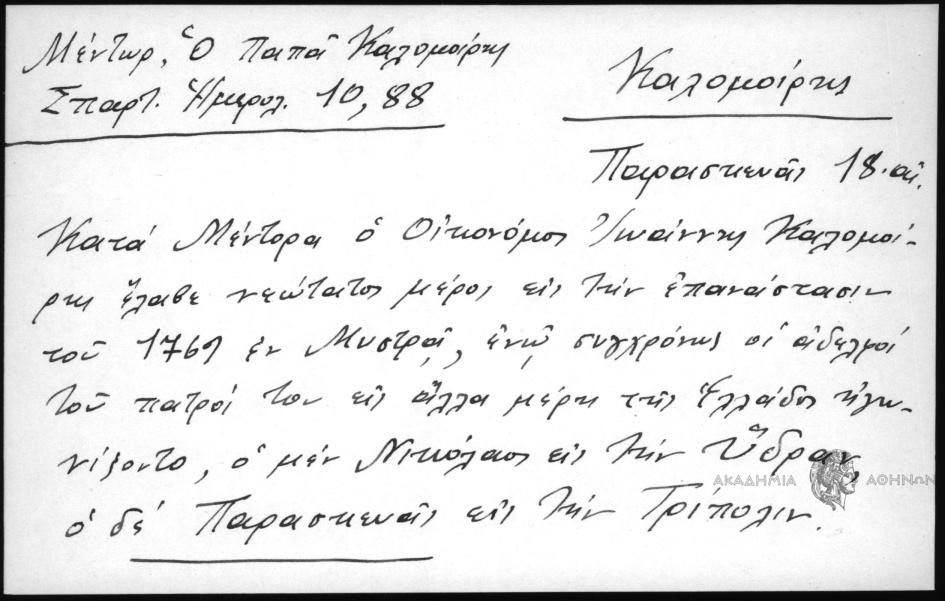 Μέντωρ, Ὁ Παπᾶ Καλομοίρης
Σπαρτ. Ἡμερολ. 10, 88
Καλομοίρης
Παρασκευᾶς 18. αἰ.
Κατά Μέντορα ὁ Οἰκονόμος Ἰωάννης Καλομοί-
ρης ἔλαβε νεώτατος μέρος εἰς τήν ἐπανάστασιν
τοῦ 1769 ἐν Μυστρᾷ, ἐνῷ συγχρόνως οἱ ἀδελφοί
τοῦ πατρός του εἰς ἄλλα μέρη τῆς Ἑλλάδος ἠγω-
νίζοντο, ὁ μέν Νικόλαος εἰς τήν Ὕδραν,
ὁ δέ Παρασκευᾶς εἰς τήν Τρίπολιν.
ΑΚΑΔΗΜΙΑ ΑΘΗΝΩΝ